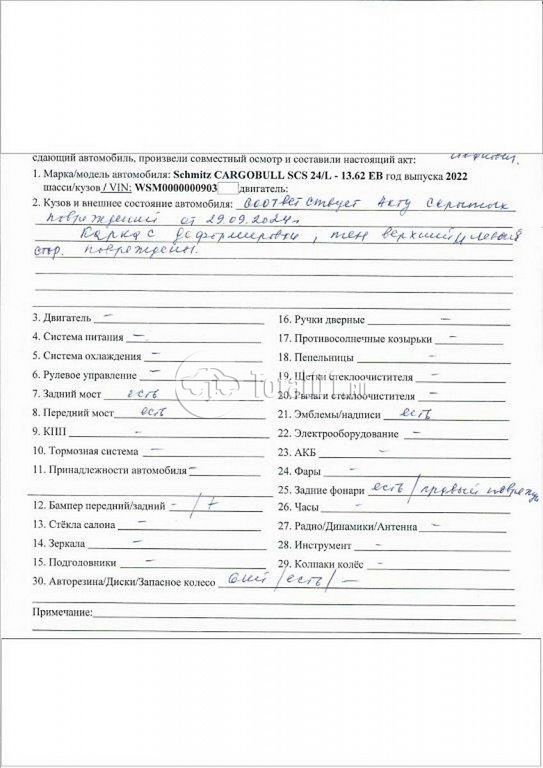 сдающий автомобиль, произвели совместный осмотр и составили настоящий акт:
1. Марка/модель автомобиля: Schmitz CARGOBULL SCS 24/L - 13.62 EB год выпуска 2022
шасси/кузов / VIN: WSM0000000903 двигатель:
2. Кузов и внешнее состояние автомобиля: соответствует Акту скрытых
повреждений от 29.09.2024г
Каркас деформирован, тент верхний и левый
стор. повреждены.
3. Двигатель –
4. Система питания –
5. Система охлаждения –
6. Рулевое управление –
7. Задний мост есть
8. Передний мост есть
9. КПП –
10. Тормозная система –
11. Принадлежности автомобиля –
12. Бампер передний/задний - /+
13. Стёкла салона –
14. Зеркала –
15. Подголовники –
16. Ручки дверные –
17. Противосолнечные козырьки –
18. Пепельницы –
19. Щетки стеклоочистителя –
20. Рычаги стеклоочистителя –
21. Эмблемы/надписи есть
22. Электрооборудование –
23. АКБ –
24. Фары –
25. Задние фонари есть/правый поврежд
26. Часы –
27. Радио/Динамики/Антенна –
28. Инструмент –
29. Колпаки колёс –
30. Авторезина/Диски/Запасное колесо 6шт/есть/–
Примечание:
TotalM.RU